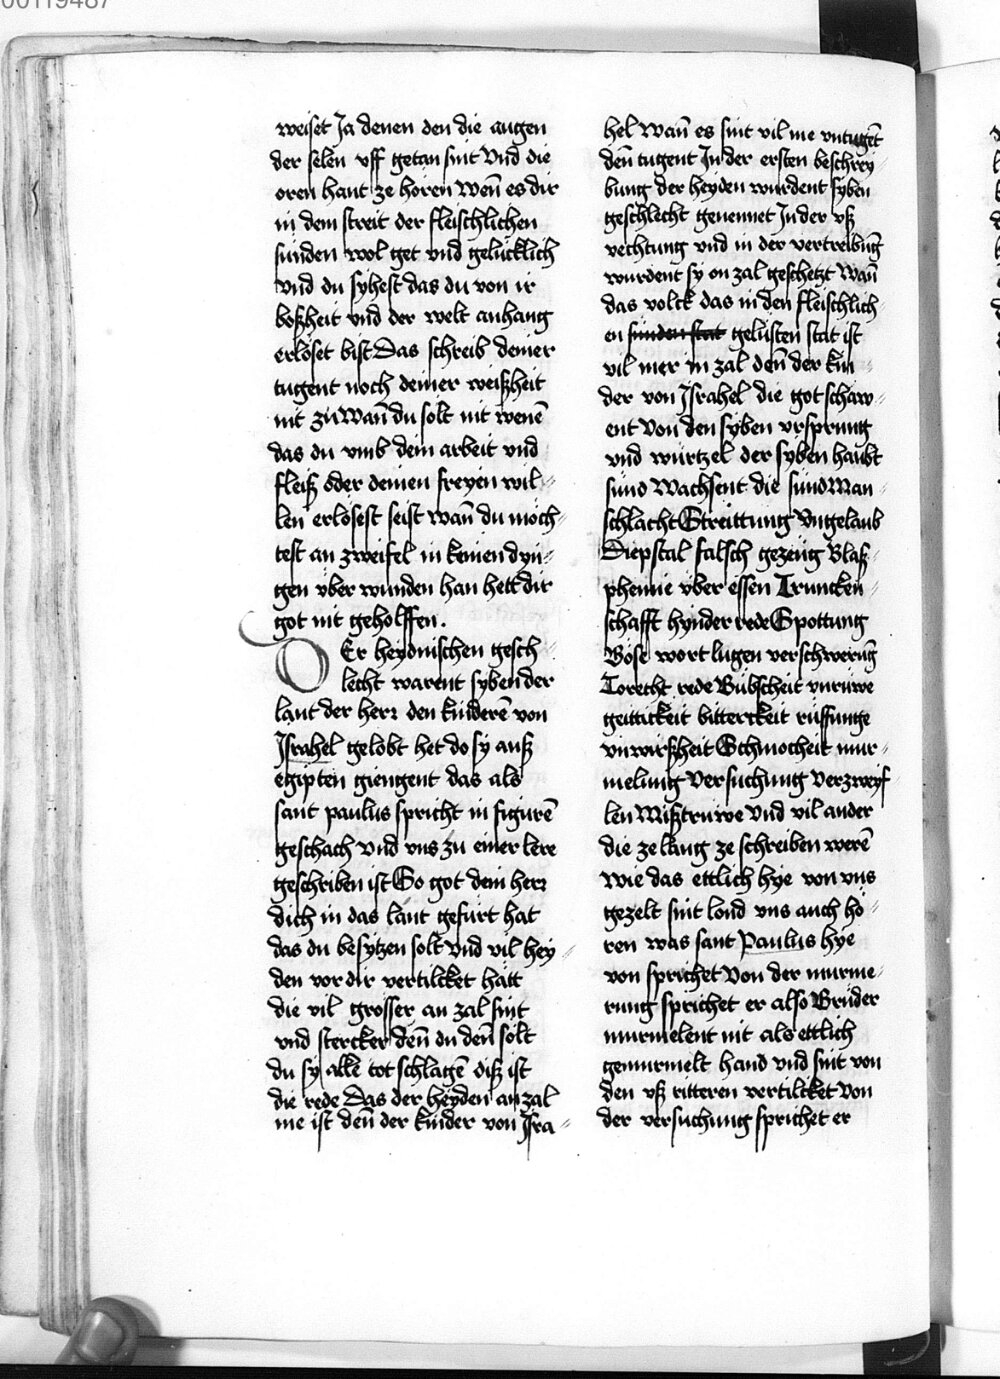 00119487
weiset Ja denen den die augen
der selen vff getan sint Vnd die
oren hant ze horen Wen̄ es dir
in dem streit der fleischlichen
sunden wol get vnd gelucklich
vnd du syhest das du von ir
boßheit vnd der welt anhang
erloset bist Das schreib deiner
tugent noch deiner weißheit
nit zu Wan̄ du solt nit wenē
das du vmb dein arbeit vnd
fleiß oder deinen freyen wil⸗
len erlosest seist wan̄ du moch⸗
test an zweifel in keinen dyn⸗
gen vber wunden han hett dir
got nit geholffen.
Er heydnischen gesch⸗
lecht warent syben der
lant der herr den kinderē von
Israhel gelobt het do sy auß
egipten giengent das als
sant paulus spricht in figurē
geschach vnd vns zu einer lere
geschriben ist So got dein herr
dich in das lant gefurt hat
das du besytzen solt vnd vil hey⸗
den vor dir vertilcket hatt
die vil grosser an zal sint
vnd stercker den̄ du den̄ solt
du sy alle tot schlagē diß ist
die rede Das der heyden an zal
me ist den̄ der kinder von Isra⸗
hel Wan̄ es sint vil me vntugēt
den̄ tugent In der ersten beschrey⸗
bung der heyden wurdent syben
geschlecht genennet In der vß
vechtung vnd in der vertreibūg
wurdent sy on zal geschetzt Wan̄
das volck das in den fleischlich⸗
en sunden stat gelusten stat ist
vil mer in zal den̄ der kin⸗
der von Israhel die got schaw⸗
ent Von den syben vrsprung
vnd wurtzel der syben haubt
sund Wachsent die sund Man⸗
schlacht Streittung Vngelaub
Diepstal falsch gezeug Blaß⸗
phemie vber essen Truncken⸗
schafft hynder rede Spottung
Böse wort lugen verschwerūg
Torecht rede Bubscheit vnruwe
geittickeit bitterckeit ruffunge
vnwirßheit Schmocheit mur⸗
melung Versuchung Verzweyf⸗
len Mißtruwe Vnd vil ander
die ze lang ze schreiben werē
wie das ettlich hye von vns
gezelt sint lond vns auch hö⸗
ren was sant Paulus hye
von sprichet Von der murme⸗
rung sprichet er also Bruder
murmelent nit als ettlich
gemurmelt hand vnd sint von
den vß ritteren vertilcket Von
der versuchung sprichet er